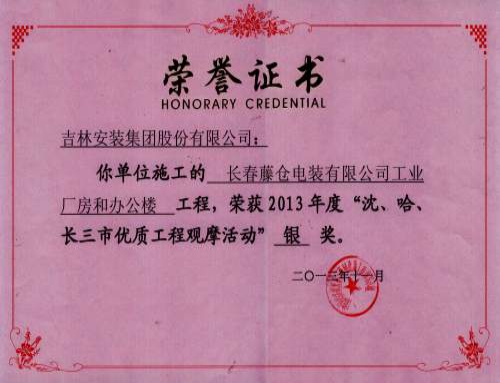 荣誉证书
HONORARY CREDENTIAL
吉林安装集团股份有限公司:
你单位施工的 长春藤仓电装有限公司工业
厂房和办公楼 工程,荣获2013年度“沈、哈、
长三市优质工程观摩活动”银 奖。
二〇一三年十一月